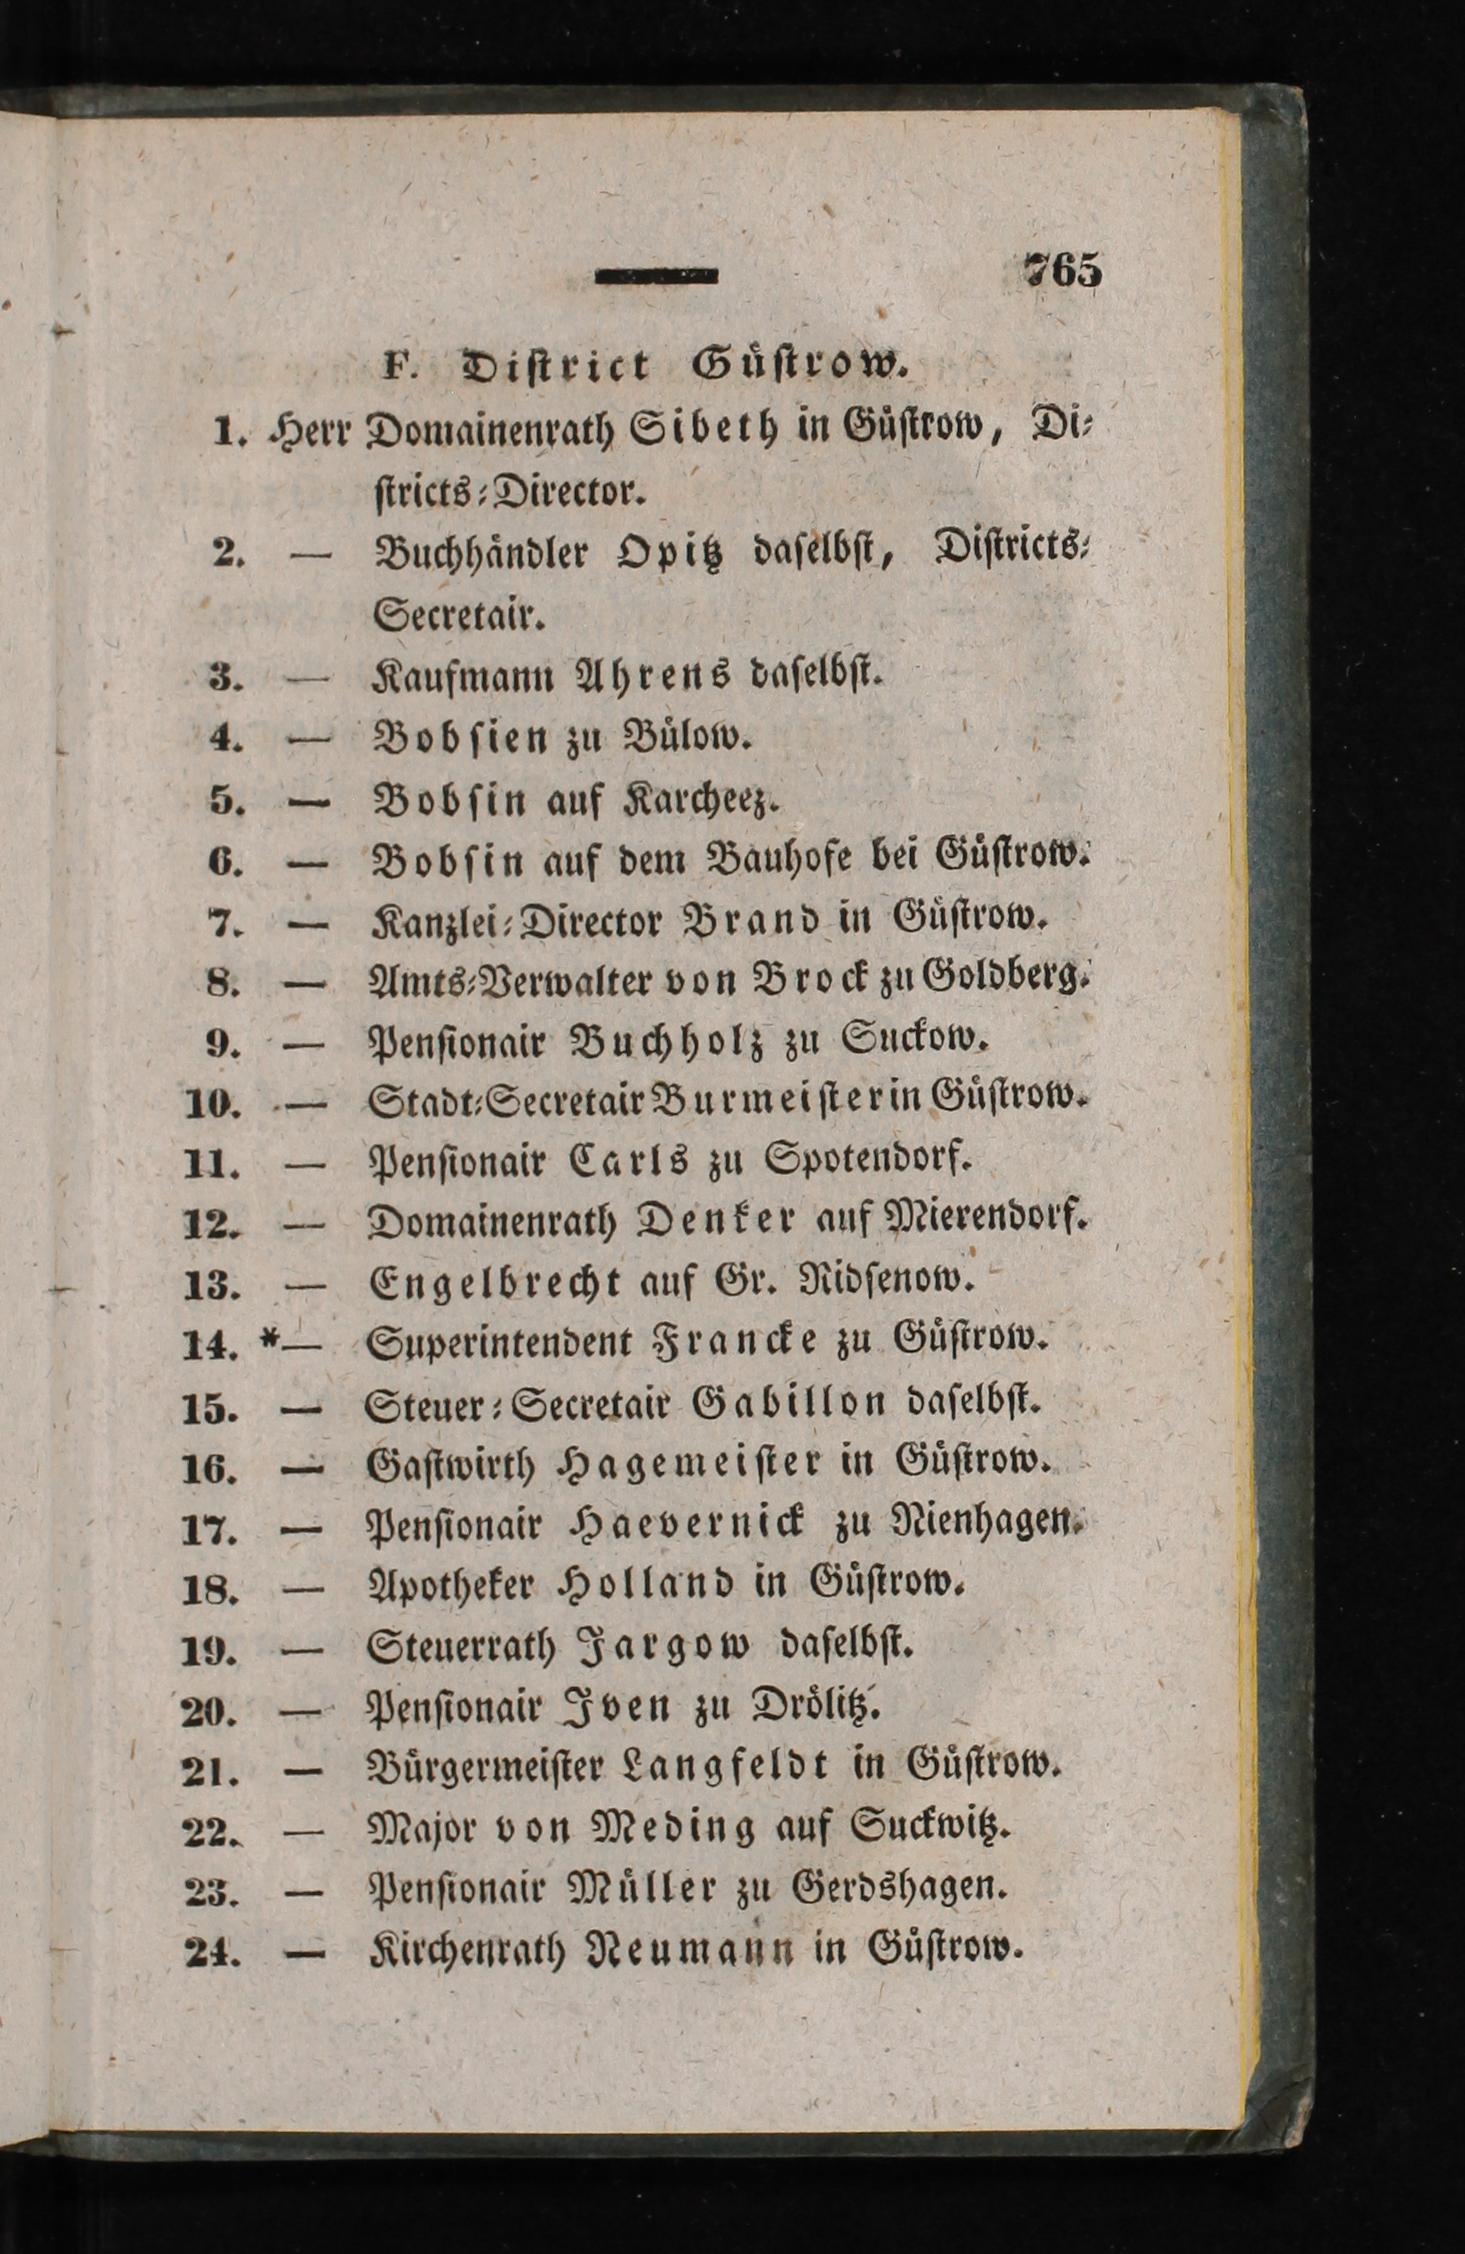 765
F. District Güstrow.
1. Herr Domainenrath Sibeth in Güstrow, Di-
stricts-Director.
2. — Buchhändler Opitz daselbst, Districts-
Secretair.
3. — Kaufmann Ahrens daselbst.
4. — Bobsien zu Bülow.
5. — Bobsin auf Karcheez.
6. — Bobsin auf dem Bauhofe bei Güstrow.
7. — Kanzlei-Director Brand in Güstrow.
8. — Amts-Verwalter von Brock zu Goldberg.
9. — Pensionair Buchholz zu Suckow.
10. — Stadt-Secretair Burmeister in Güstrow.
11. — Pensionair Carls zu Spotendorf.
12. — Domainenrath Denker auf Mierendorf.
13. — Engelbrecht auf Gr. Ridsenow.
14. *— Superintendent Francke zu Güstrow.
15. — Steuer-Secretair Gabillon daselbst.
16. — Gastwirth Hagemeister in Güstrow.
17. — Pensionair Haevernick zu Nienhagen.
18. — Apotheker Holland in Güstrow.
19. — Steuerrath Jargow daselbst.
20. — Pensionair Iven zu Drölitz.
21. — Bürgermeister Langfeldt in Güstrow.
22. — Major von Meding auf Suckwitz.
23. — Pensionair Müller zu Gerdshagen.
24. — Kirchenrath Neumann in Güstrow.